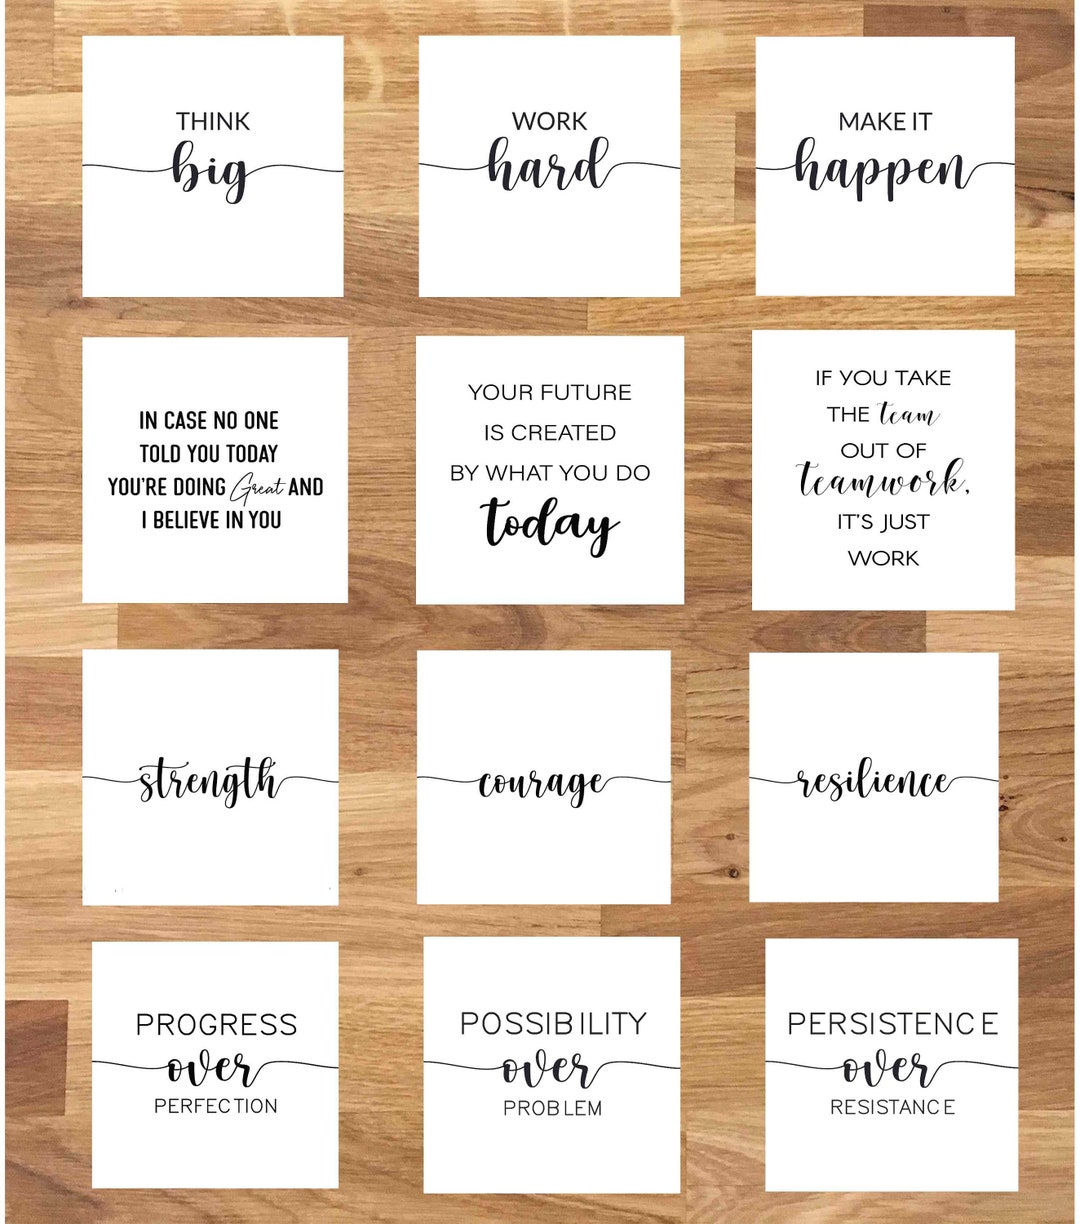 THINK
big
WORK
hard
MAKE IT
happen
IN CASE NO ONE
TOLD YOU TODAY
YOU'RE DOING Great AND
I BELIEVE IN YOU
YOUR FUTURE
IS CREATED
BY WHAT YOU DO
today
IF YOU TAKE
THE team
OUT OF
teamwork,
IT'S JUST
WORK
strength
courage
resilience
PROGRESS
over
PERFECTION
POSSIBILITY
over
PROBLEM
PERSISTENCE
over
RESISTANCE